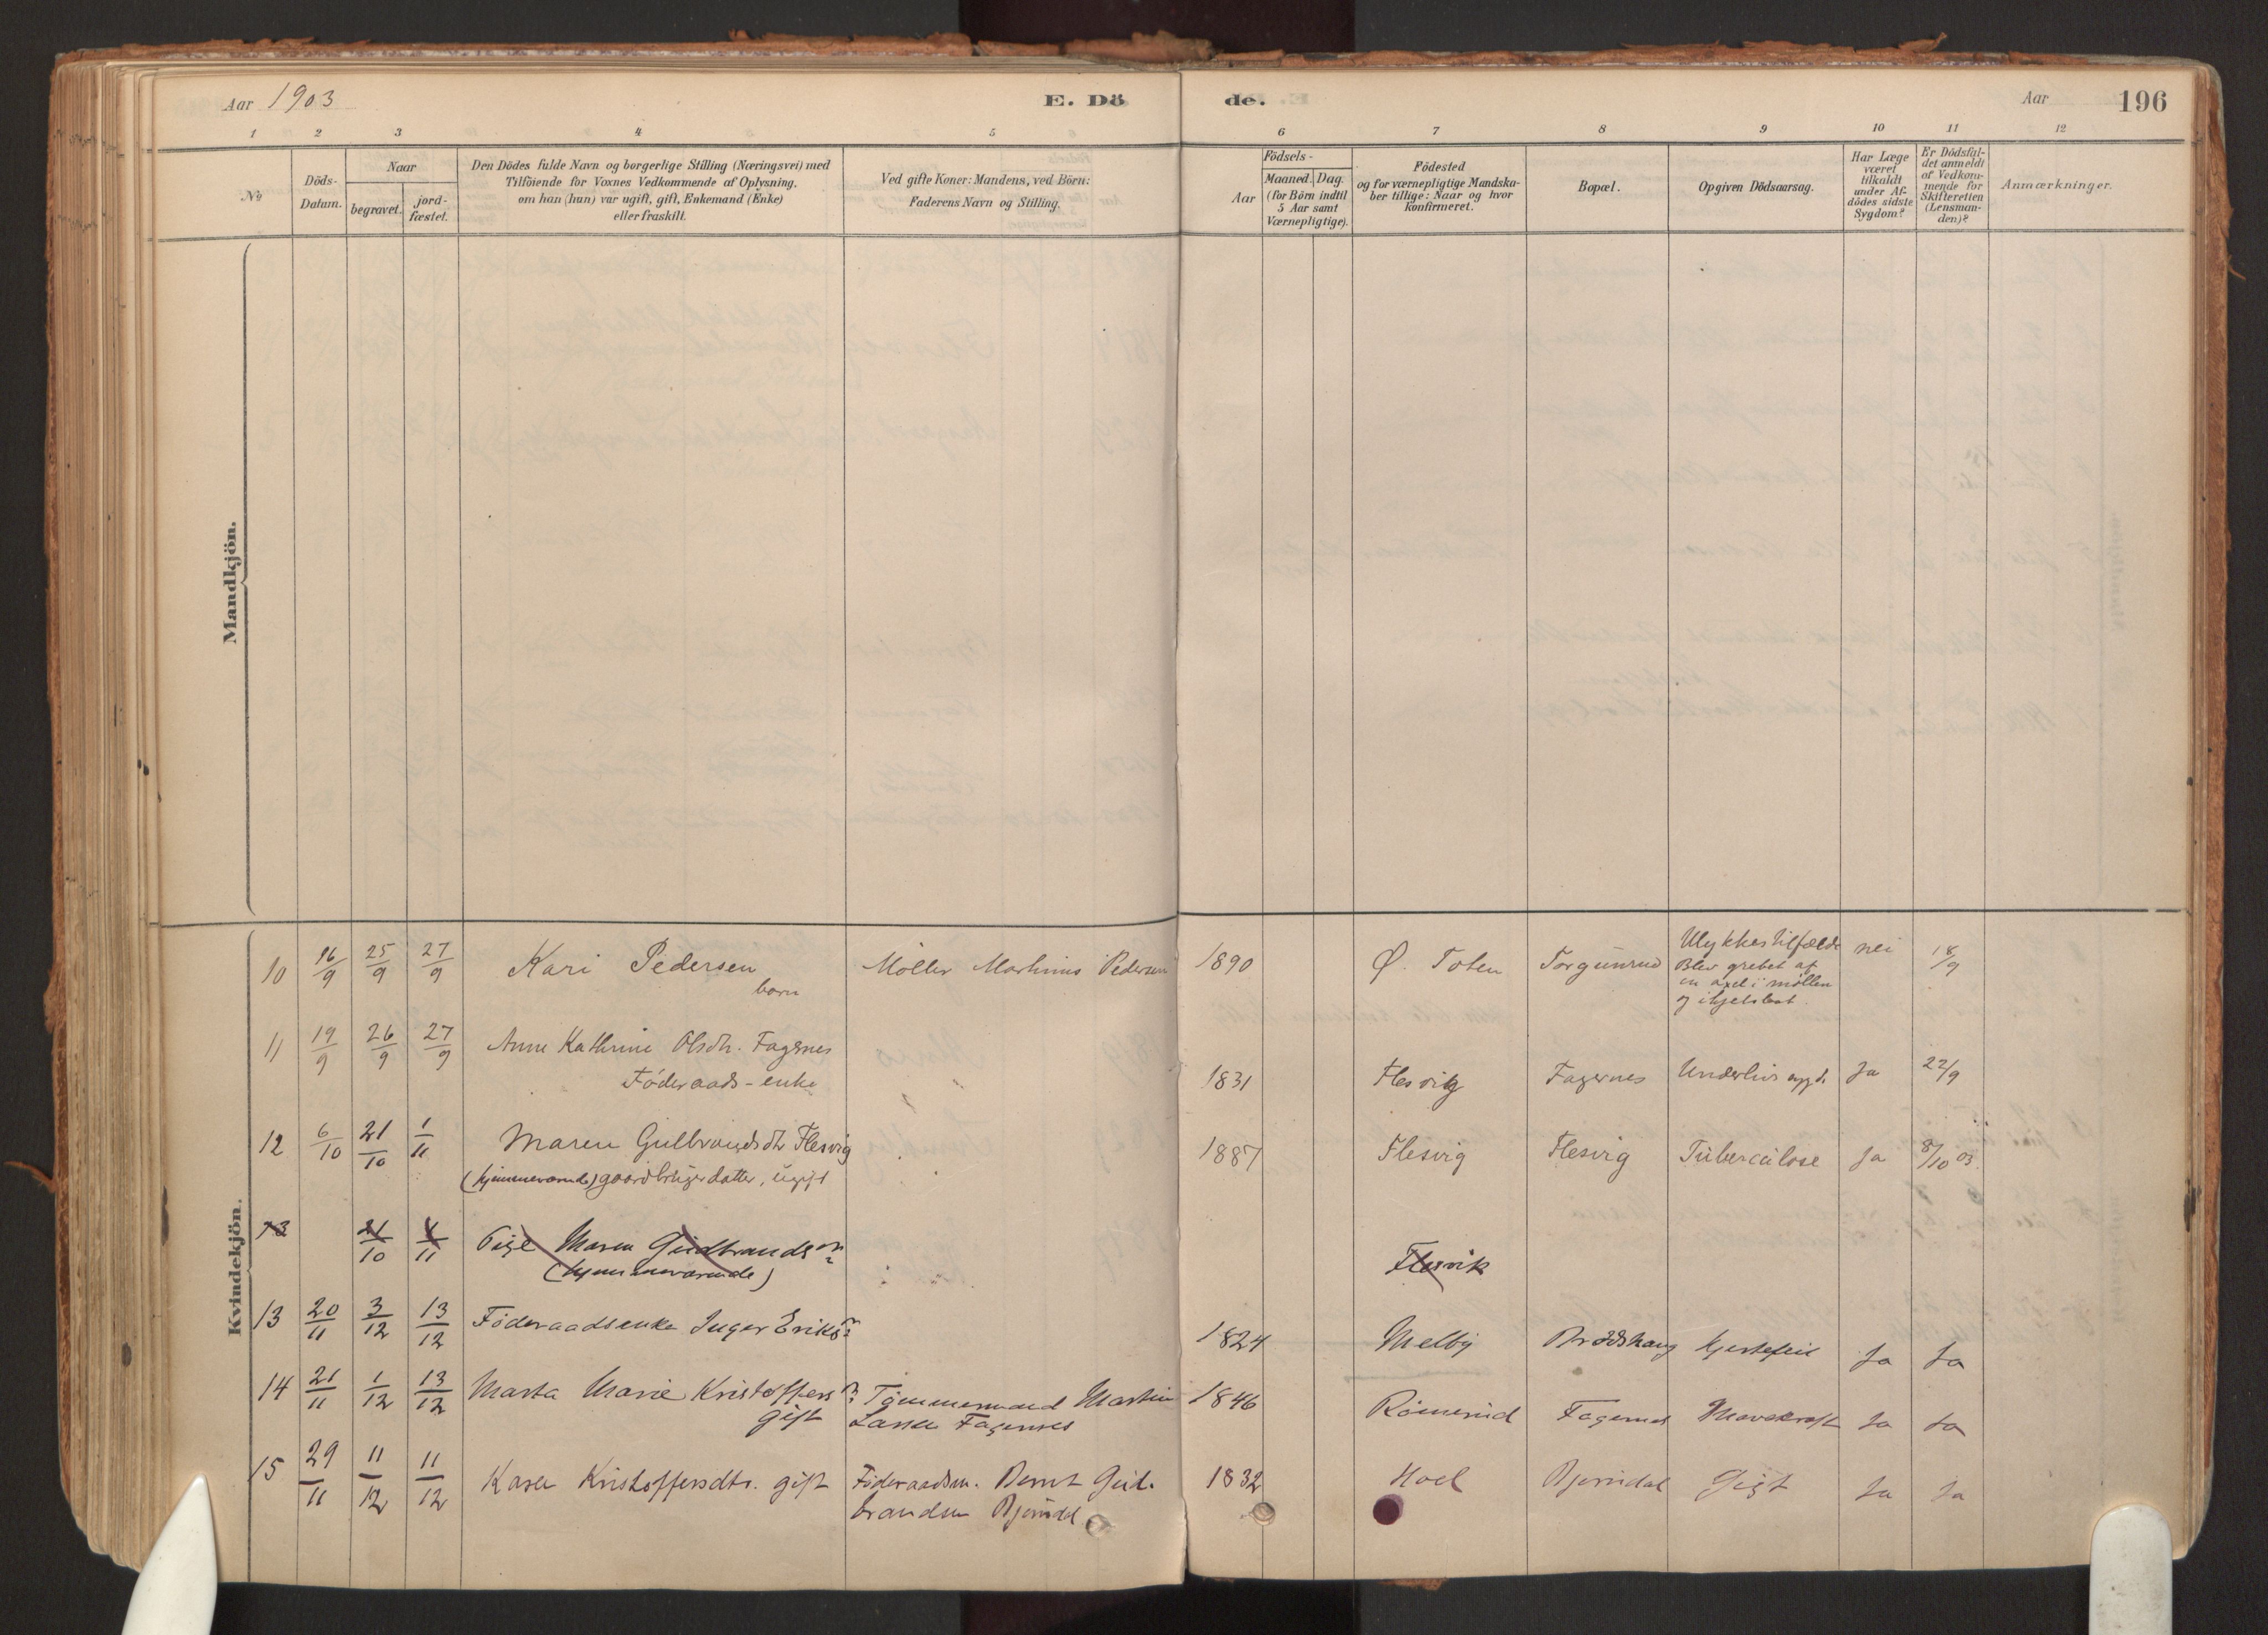 Aar 1903
E. Dö
de.
Aar
196
1 2 3 4 5 6 7 8 9 10 11 12
No
Döds-
Datum.
Naar
begravet.
jord-
fæstet.
Den Dödes fulde Navn og borgerlige Stilling (Næringsvei) med
Tilföiende for Voxnes Vedkommende af Oplysning.
om han (hun) var ugift, gift, Enkemand (Enke)
eller fraskilt.
Ved gifte Koner: Mandens, ved Börn:
Faderens Navn og Stilling.
Aar
Födsels-
Maaned. Dag.
(for Börn indtil
5 Aar samt
Værnepligtige).
Födested
og for værnepligtige Mandska-
ber tillige: Naar og hvor
konfirmeret.
Bopæl.
Opgiven Dödsaarsag.
Har Læge
været
tilkaldt
under Af-
dödes sidste
Sygdom?
Er Dödsfal-
det anmeldt
af Vedkom-
mende for
Skifteretten
(Lensman-
den)?
Anmærkninger.
Mandkjön.
Kvindekjön.
10 16/9 25/9 27/9 Kari Pedersen Møller Martinus Pedersen 1890 Ø. Toten Torgunrud Ulykkestilfælde nei 18/9
barn
Blev grebet af
en axel i møllen
og ihjelslaat.
11 19/9 26/9 27/9 Anne Kathrine Olsdtr. Fagernes
Føderaads-enke 1831 Flesvig Fagernes Underlivssygd. Ja 22/9
12 6/10 21/10 1/11 Maren Gulbrandsdtr Flesvig 1887 Flesvig Flesvig Tuberculose Ja 8/10 03.
(hjemmeværende) gaardbrugerdatter, ugift
13 21/10 1/11 Pige Maren Gudbrandsdr Flesvik
(hjemmeværende)
13 20/11 3/12 13/12 Føderaadsenke Inger Eriksdr 1824 Melby Brødshaug hjertefeil Ja Ja
14 21/11 1/12 13/12 Marta Marie Kristoffersdr Tømmermand Martin 1846 Rømerud Fagernes Mavekræft Ja Ja
gift Larsen Fagernes
15 29/11 11/12 11/12 Karen Kristoffersdtr. gift Føderaadsm. Bernt Gud- 1832 Hoel Bjørndal Gigt Ja Ja
brandsen Bjørndal